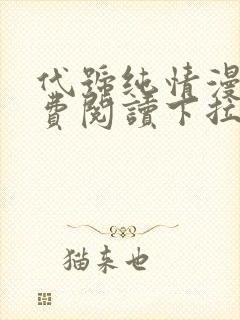 代號純情漫
費閱讀下拉
猫来也